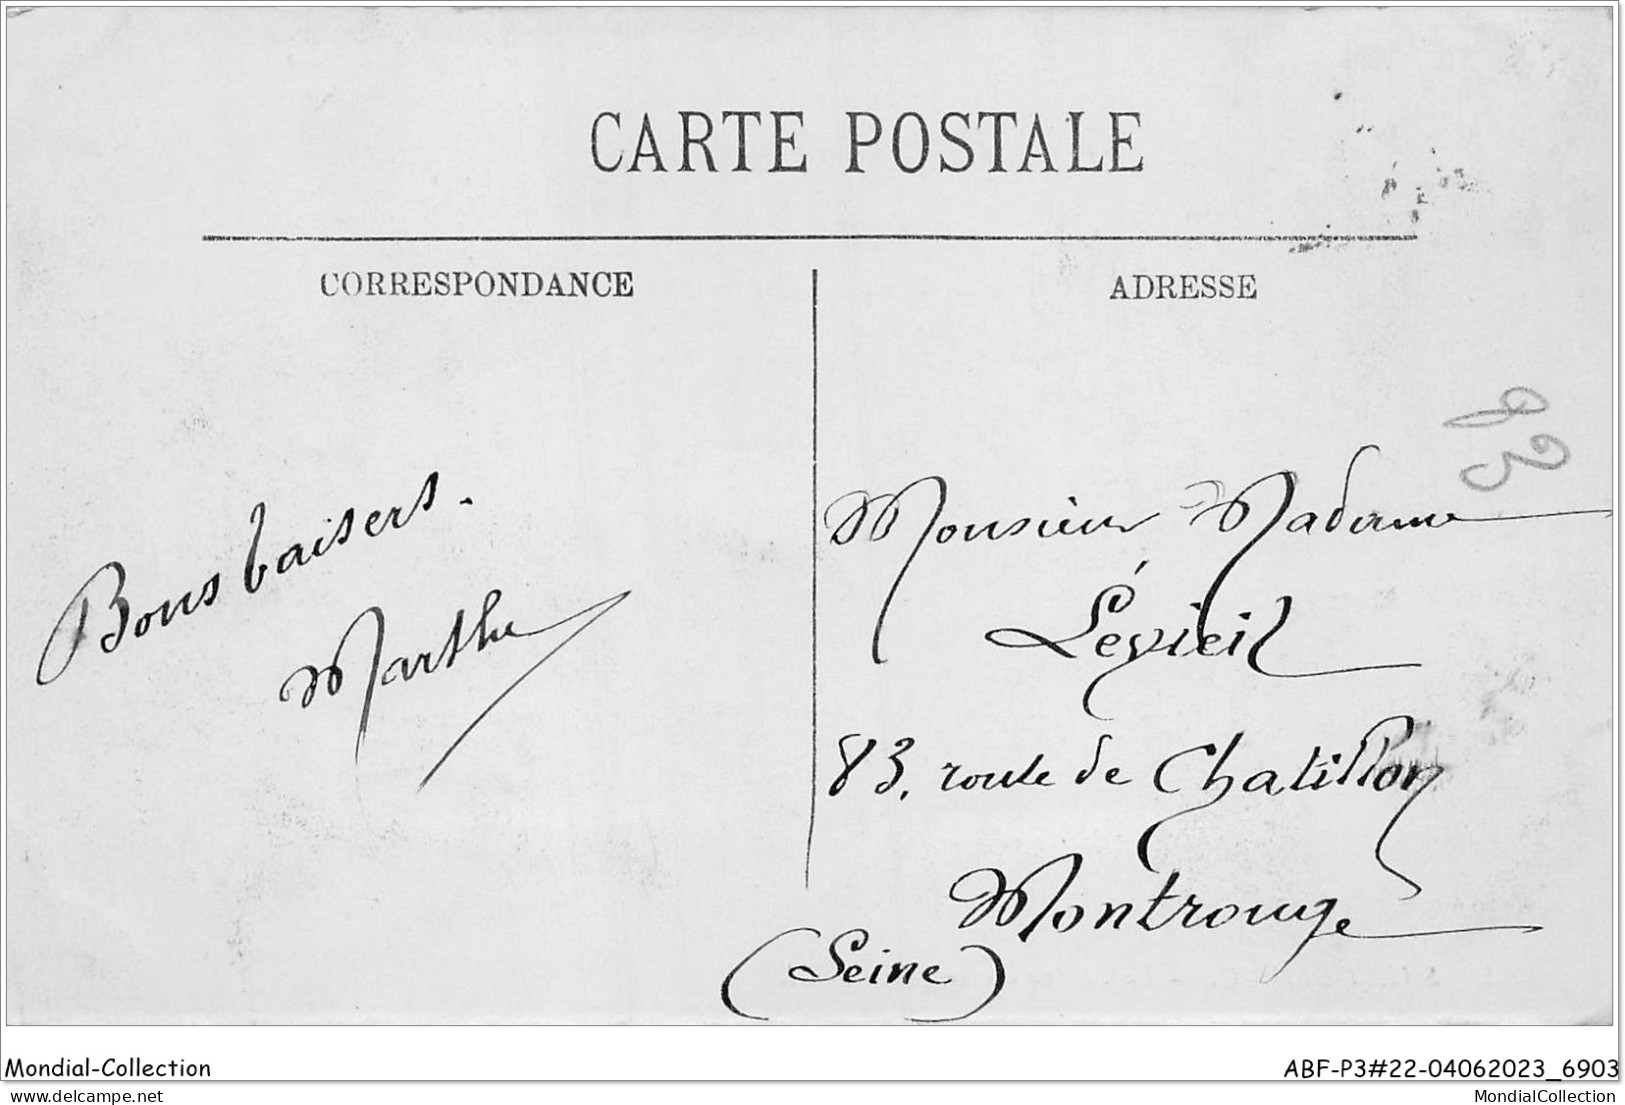 CARTE POSTALE
CORRESPONDANCE
ADRESSE
93
Bons baisers.
Marthe
Monsieur Madame
Lévieil
83, route de Chatillon
Montrouge
(Seine)
Mondial-Collection
ABF-P3#22-04062023_6903
delcampe.net
MondialCollection